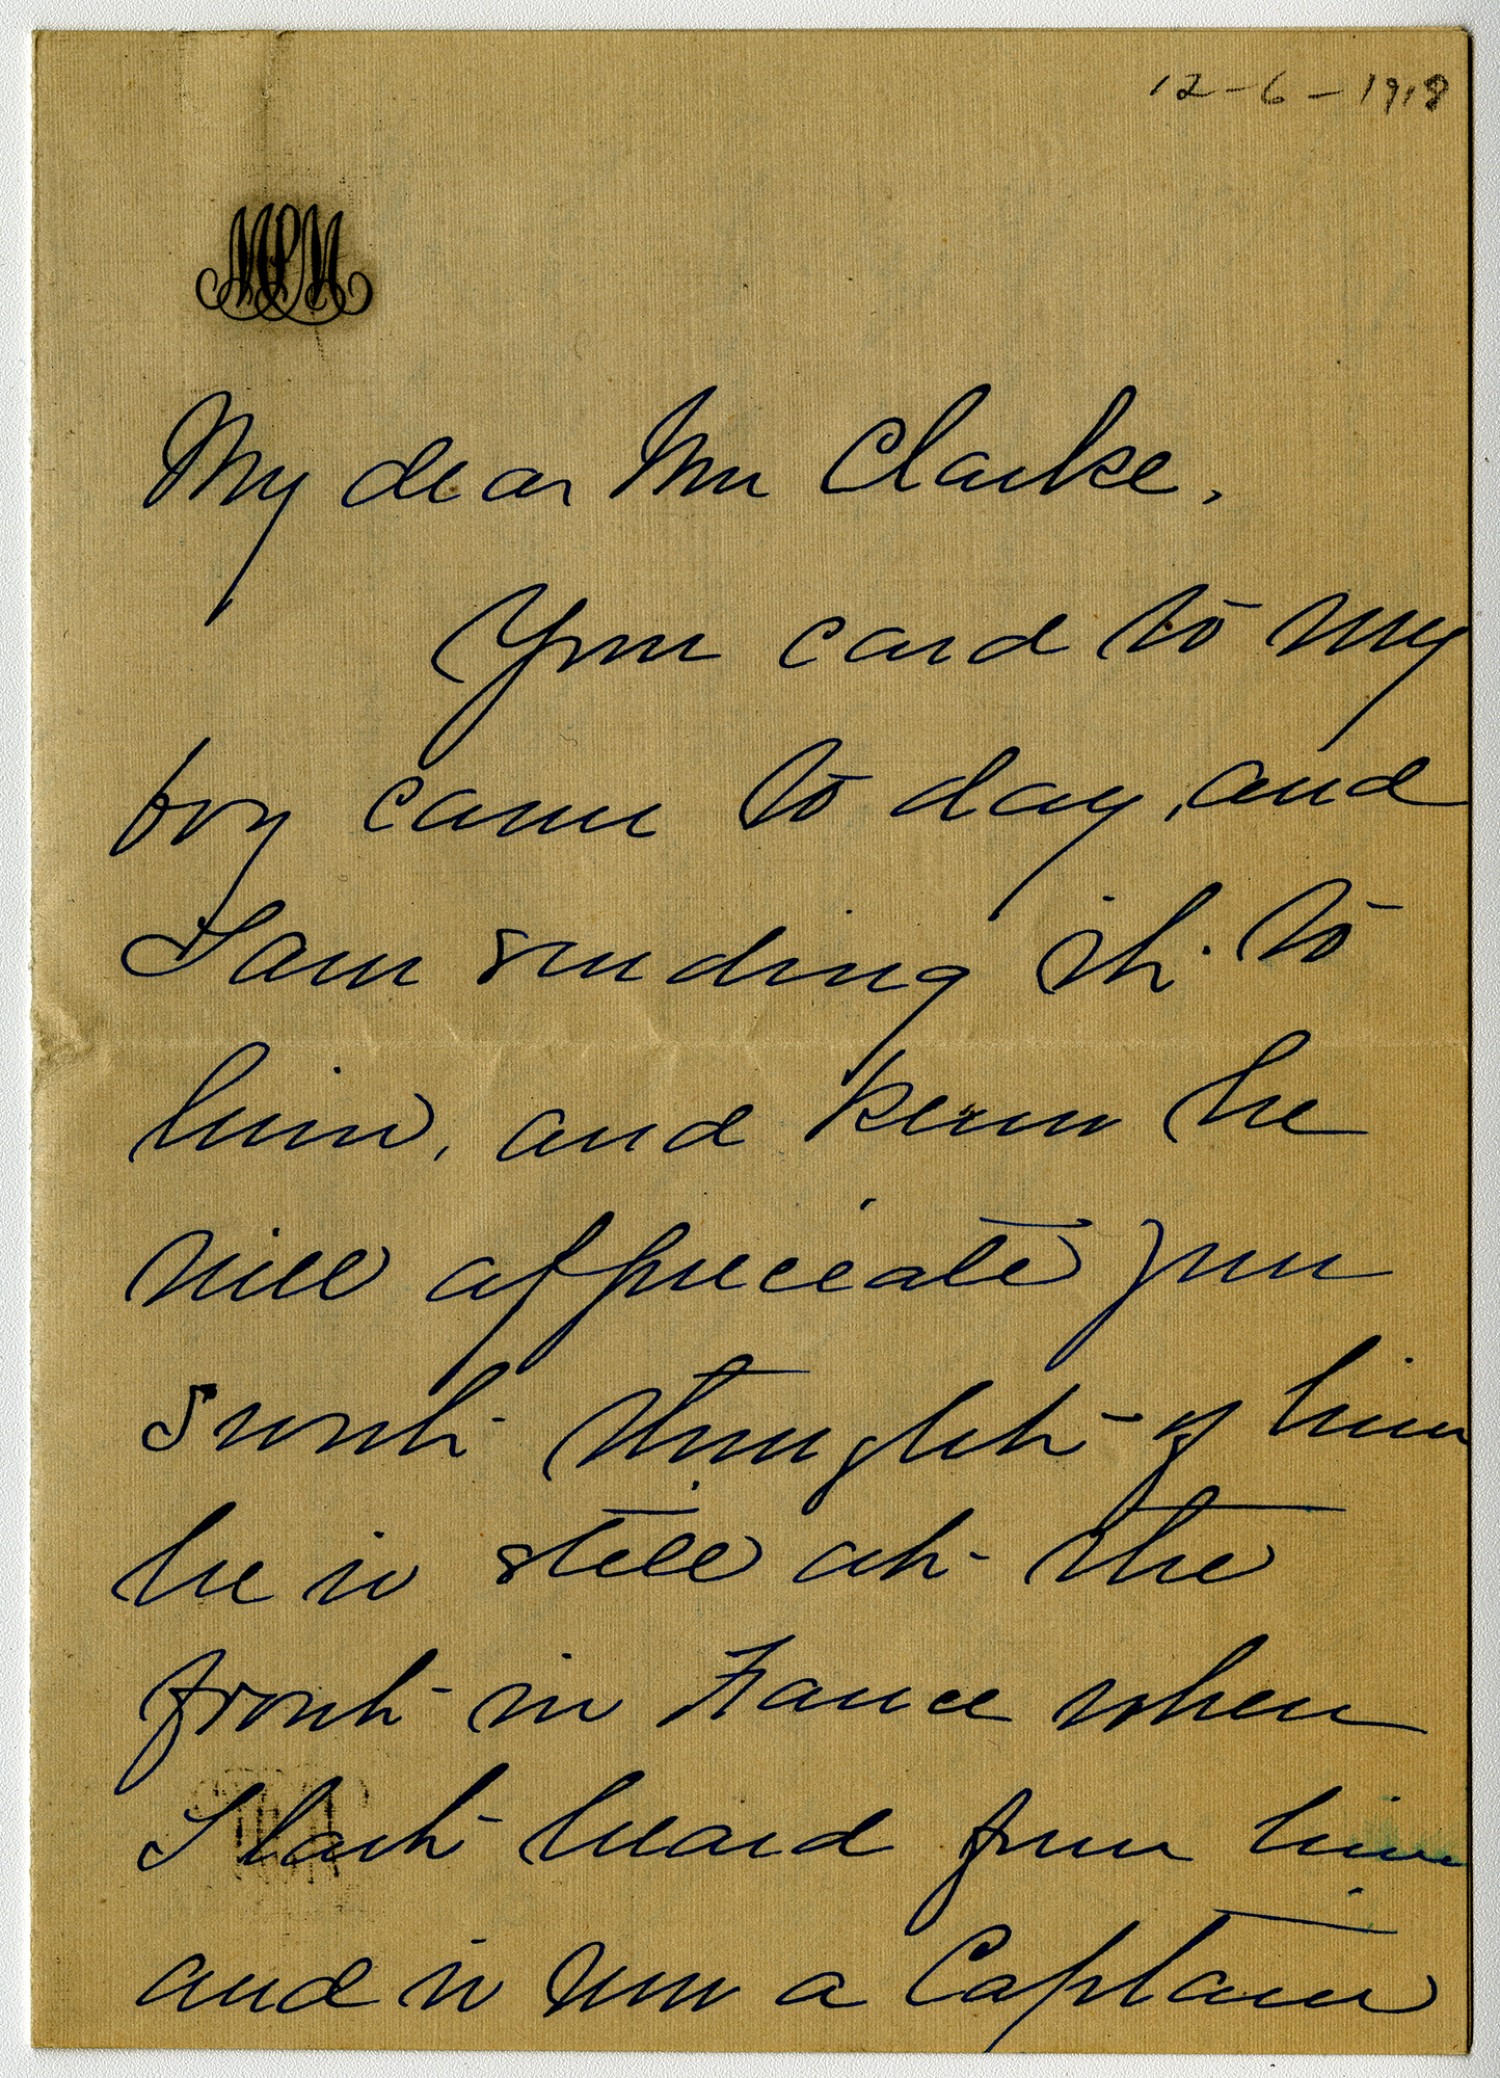 12-6-1918
MPM
My dear Mr Clarke,
Your card to my
boy came to day, and
I am sending it to
him, and know he
will appreciate your
sweet thought of him
he is still at the
front in France when
I last heard from him
and is now a Captain